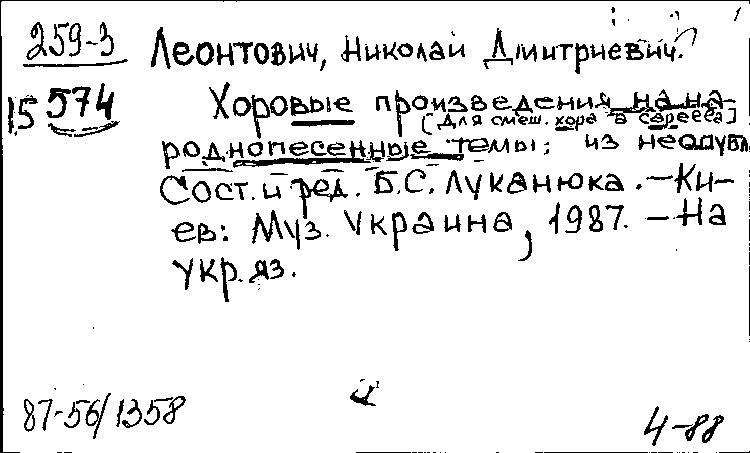 259-3 Леонтович, Николай Дмитриевич.
15 574 Хоровые произведения на на-
[для смеш. хора a capella]
роднопесенные темы; из неопубл
Сост. и ред. Б.С. Луканюка. — Ки-
ев: Муз. Украина, 1987. — На
укр. яз.
87-56/1358
4-88